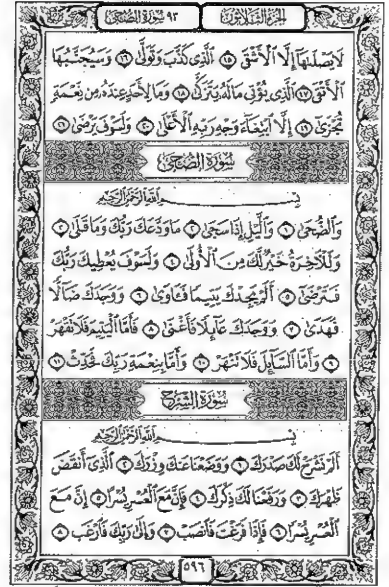 ٩٣ سورة الضحى الجزء الثلاثون
لَا يَصْلَىٰهَآ إِلَّا ٱلْأَشْقَى ١٥ ٱلَّذِى كَذَّبَ وَتَوَلَّىٰ ١٦ وَسَيُجَنَّبُهَا
ٱلْأَتْقَى ١٧ ٱلَّذِى يُؤْتِى مَالَهُۥ يَتَزَكَّىٰ ١٨ وَمَا لِأَحَدٍ عِندَهُۥ مِن نِّعْمَةٍ
تُجْزَىٰٓ ١٩ إِلَّا ٱبْتِغَآءَ وَجْهِ رَبِّهِ ٱلْأَعْلَىٰ ٢٠ وَلَسَوْفَ يَرْضَىٰ ٢١
سُورَةُ الضُّحَىٰ
بِسْمِ ٱللَّهِ ٱلرَّحْمَٰنِ ٱلرَّحِيمِ
وَٱلضُّحَىٰ ١ وَٱلَّيْلِ إِذَا سَجَىٰ ٢ مَا وَدَّعَكَ رَبُّكَ وَمَا قَلَىٰ ٣
وَلَلْءَاخِرَةُ خَيْرٌ لَّكَ مِنَ ٱلْأُولَىٰ ٤ وَلَسَوْفَ يُعْطِيكَ رَبُّكَ
فَتَرْضَىٰٓ ٥ أَلَمْ يَجِدْكَ يَتِيمًا فَـَٔاوَىٰ ٦ وَوَجَدَكَ ضَآلًّا
فَهَدَىٰ ٧ وَوَجَدَكَ عَآئِلًا فَأَغْنَىٰ ٨ فَأَمَّا ٱلْيَتِيمَ فَلَا تَقْهَرْ
٩ وَأَمَّا ٱلسَّآئِلَ فَلَا تَنْهَرْ ١٠ وَأَمَّا بِنِعْمَةِ رَبِّكَ فَحَدِّثْ ١١
سُورَةُ الشَّرْحِ
بِسْمِ ٱللَّهِ ٱلرَّحْمَٰنِ ٱلرَّحِيمِ
أَلَمْ نَشْرَحْ لَكَ صَدْرَكَ ١ وَوَضَعْنَا عَنكَ وِزْرَكَ ٢ ٱلَّذِىٓ أَنقَضَ
ظَهْرَكَ ٣ وَرَفَعْنَا لَكَ ذِكْرَكَ ٤ فَإِنَّ مَعَ ٱلْعُسْرِ يُسْرًا ٥ إِنَّ مَعَ
ٱلْعُسْرِ يُسْرًا ٦ فَإِذَا فَرَغْتَ فَٱنصَبْ ٧ وَإِلَىٰ رَبِّكَ فَٱرْغَب ٨
٥٩٦